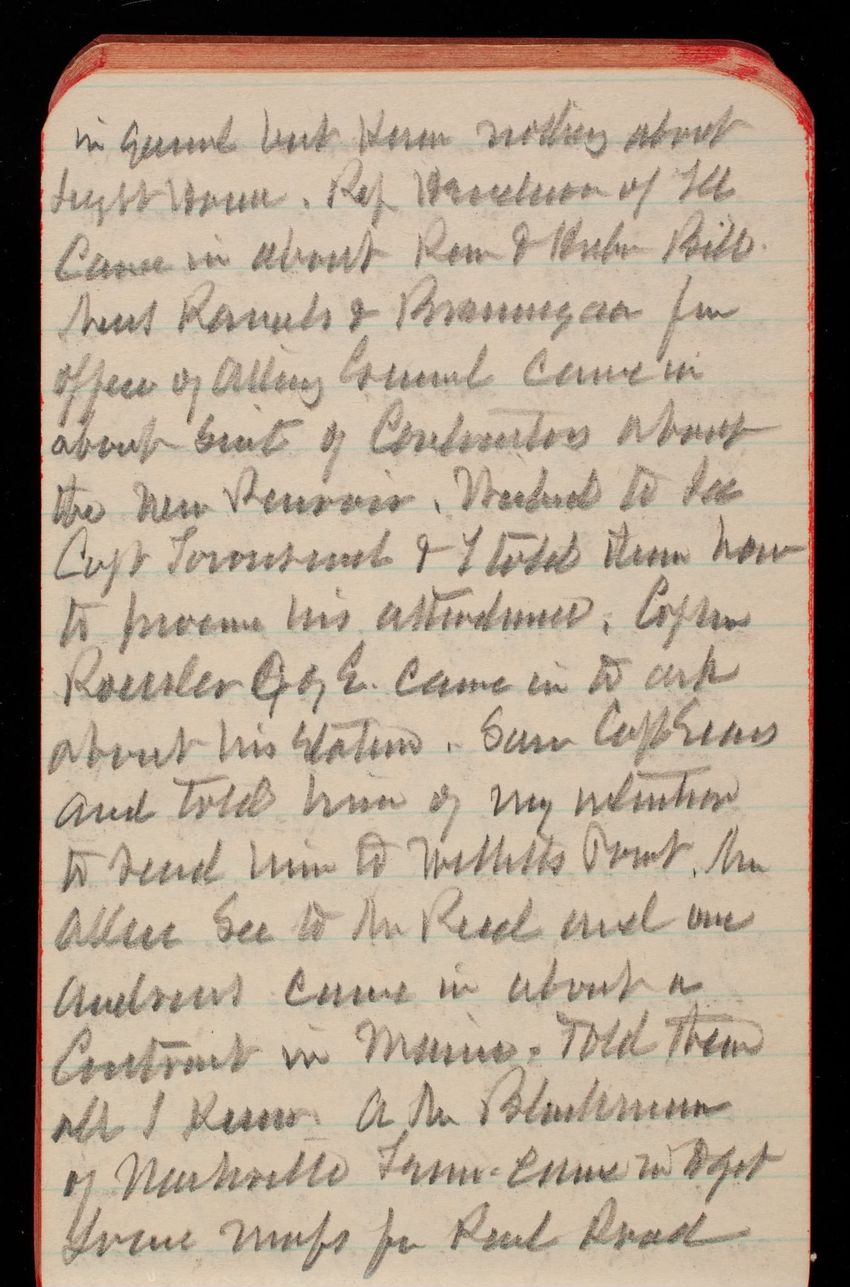 in general but knew nothing about
Light House. Rep Henderson of Ill
Came in about River & Harbor Bill.
Mess & Brannigan from
office of Atty General came in
about Suit of Contractors about
the New Reservoir. Wished to see
Capt Townsend & I told them how
to procure his attendance. Capt
Roessler C of E. came in to ask
about his station. Saw Capt Sears
and told him of my intention
to send him to Willetts Point. Mr
Allen Sec to Mr Reed and one
Andrews came in about a
Contract in Maine. Told them
all I knew. A Mr Blackman
of Nashville Tenn. came in to get
some maps for Rail Road